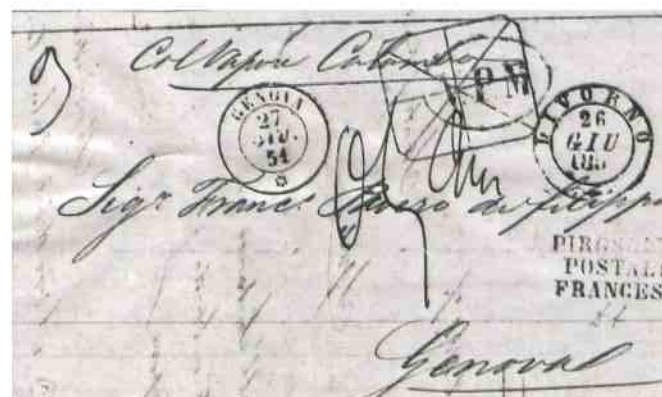 Col Vapore Colombo
P. M
GENOVA
27
GIU.
54
LIVORNO
26
GIU
185
Sigr. Franc.
di filippo
PIROSCAF
POSTALI
FRANCES
Genova